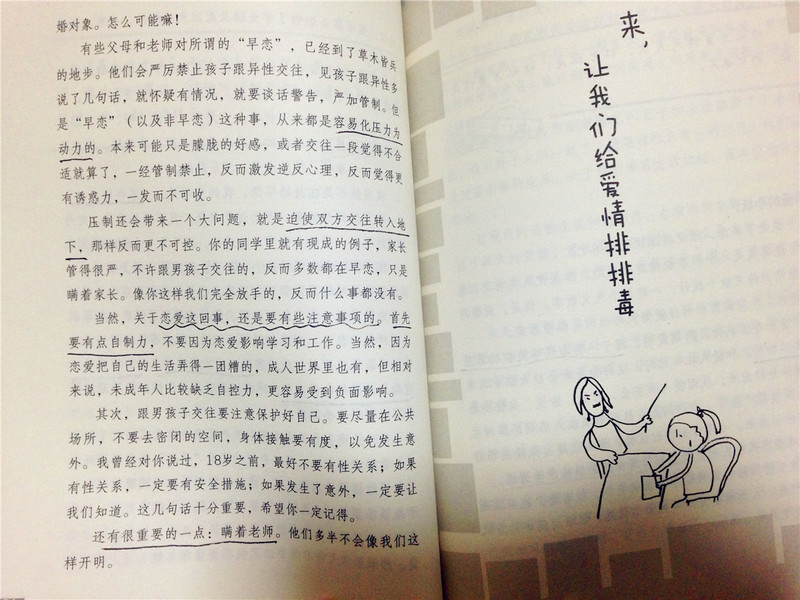 婚对象。怎么可能嘛！
有些父母和老师对所谓的“早恋”，已经到了草木皆兵
的地步。他们会严厉禁止孩子跟异性交往，见孩子跟异性多
说了几句话，就怀疑有情况，就要谈话警告，严加管制。但
是“早恋”（以及非早恋）这种事，从来都是容易化压力为
动力的。本来可能只是朦胧的好感，或者交往一段觉得不合
适就算了，一经管制禁止，反而激发逆反心理，反而觉得更
有诱惑力，一发而不可收。
压制还会带来一个大问题，就是迫使双方交往转入地
下，那样反而更不可控。你的同学里就有现成的例子，家长
管得很严，不许跟男孩子交往的，反而多数都在早恋，只是
瞒着家长。像你这样我们完全放手的，反而什么事都没有。
当然，关于恋爱这回事，还是要有些注意事项的。首先
要有点自制力，不要因为恋爱影响学习和工作。当然，因为
恋爱把自己的生活弄得一团糟的，成人世界里也有，但相对
来说，未成年人比较缺乏自控力，更容易受到负面影响。
其次，跟男孩子交往要注意保护好自己。要尽量在公共
场所，不要去密闭的空间，身体接触要有度，以免发生意
外。我曾经对你说过，18岁之前，最好不要有性关系；如果
有性关系，一定要有安全措施；如果发生了意外，一定要让
我们知道。这几句话十分重要，希望你一定记得。
还有很重要的一点：瞒着老师。他们多半不会像我们这
样开明。
来，
让我们给爱情排排毒